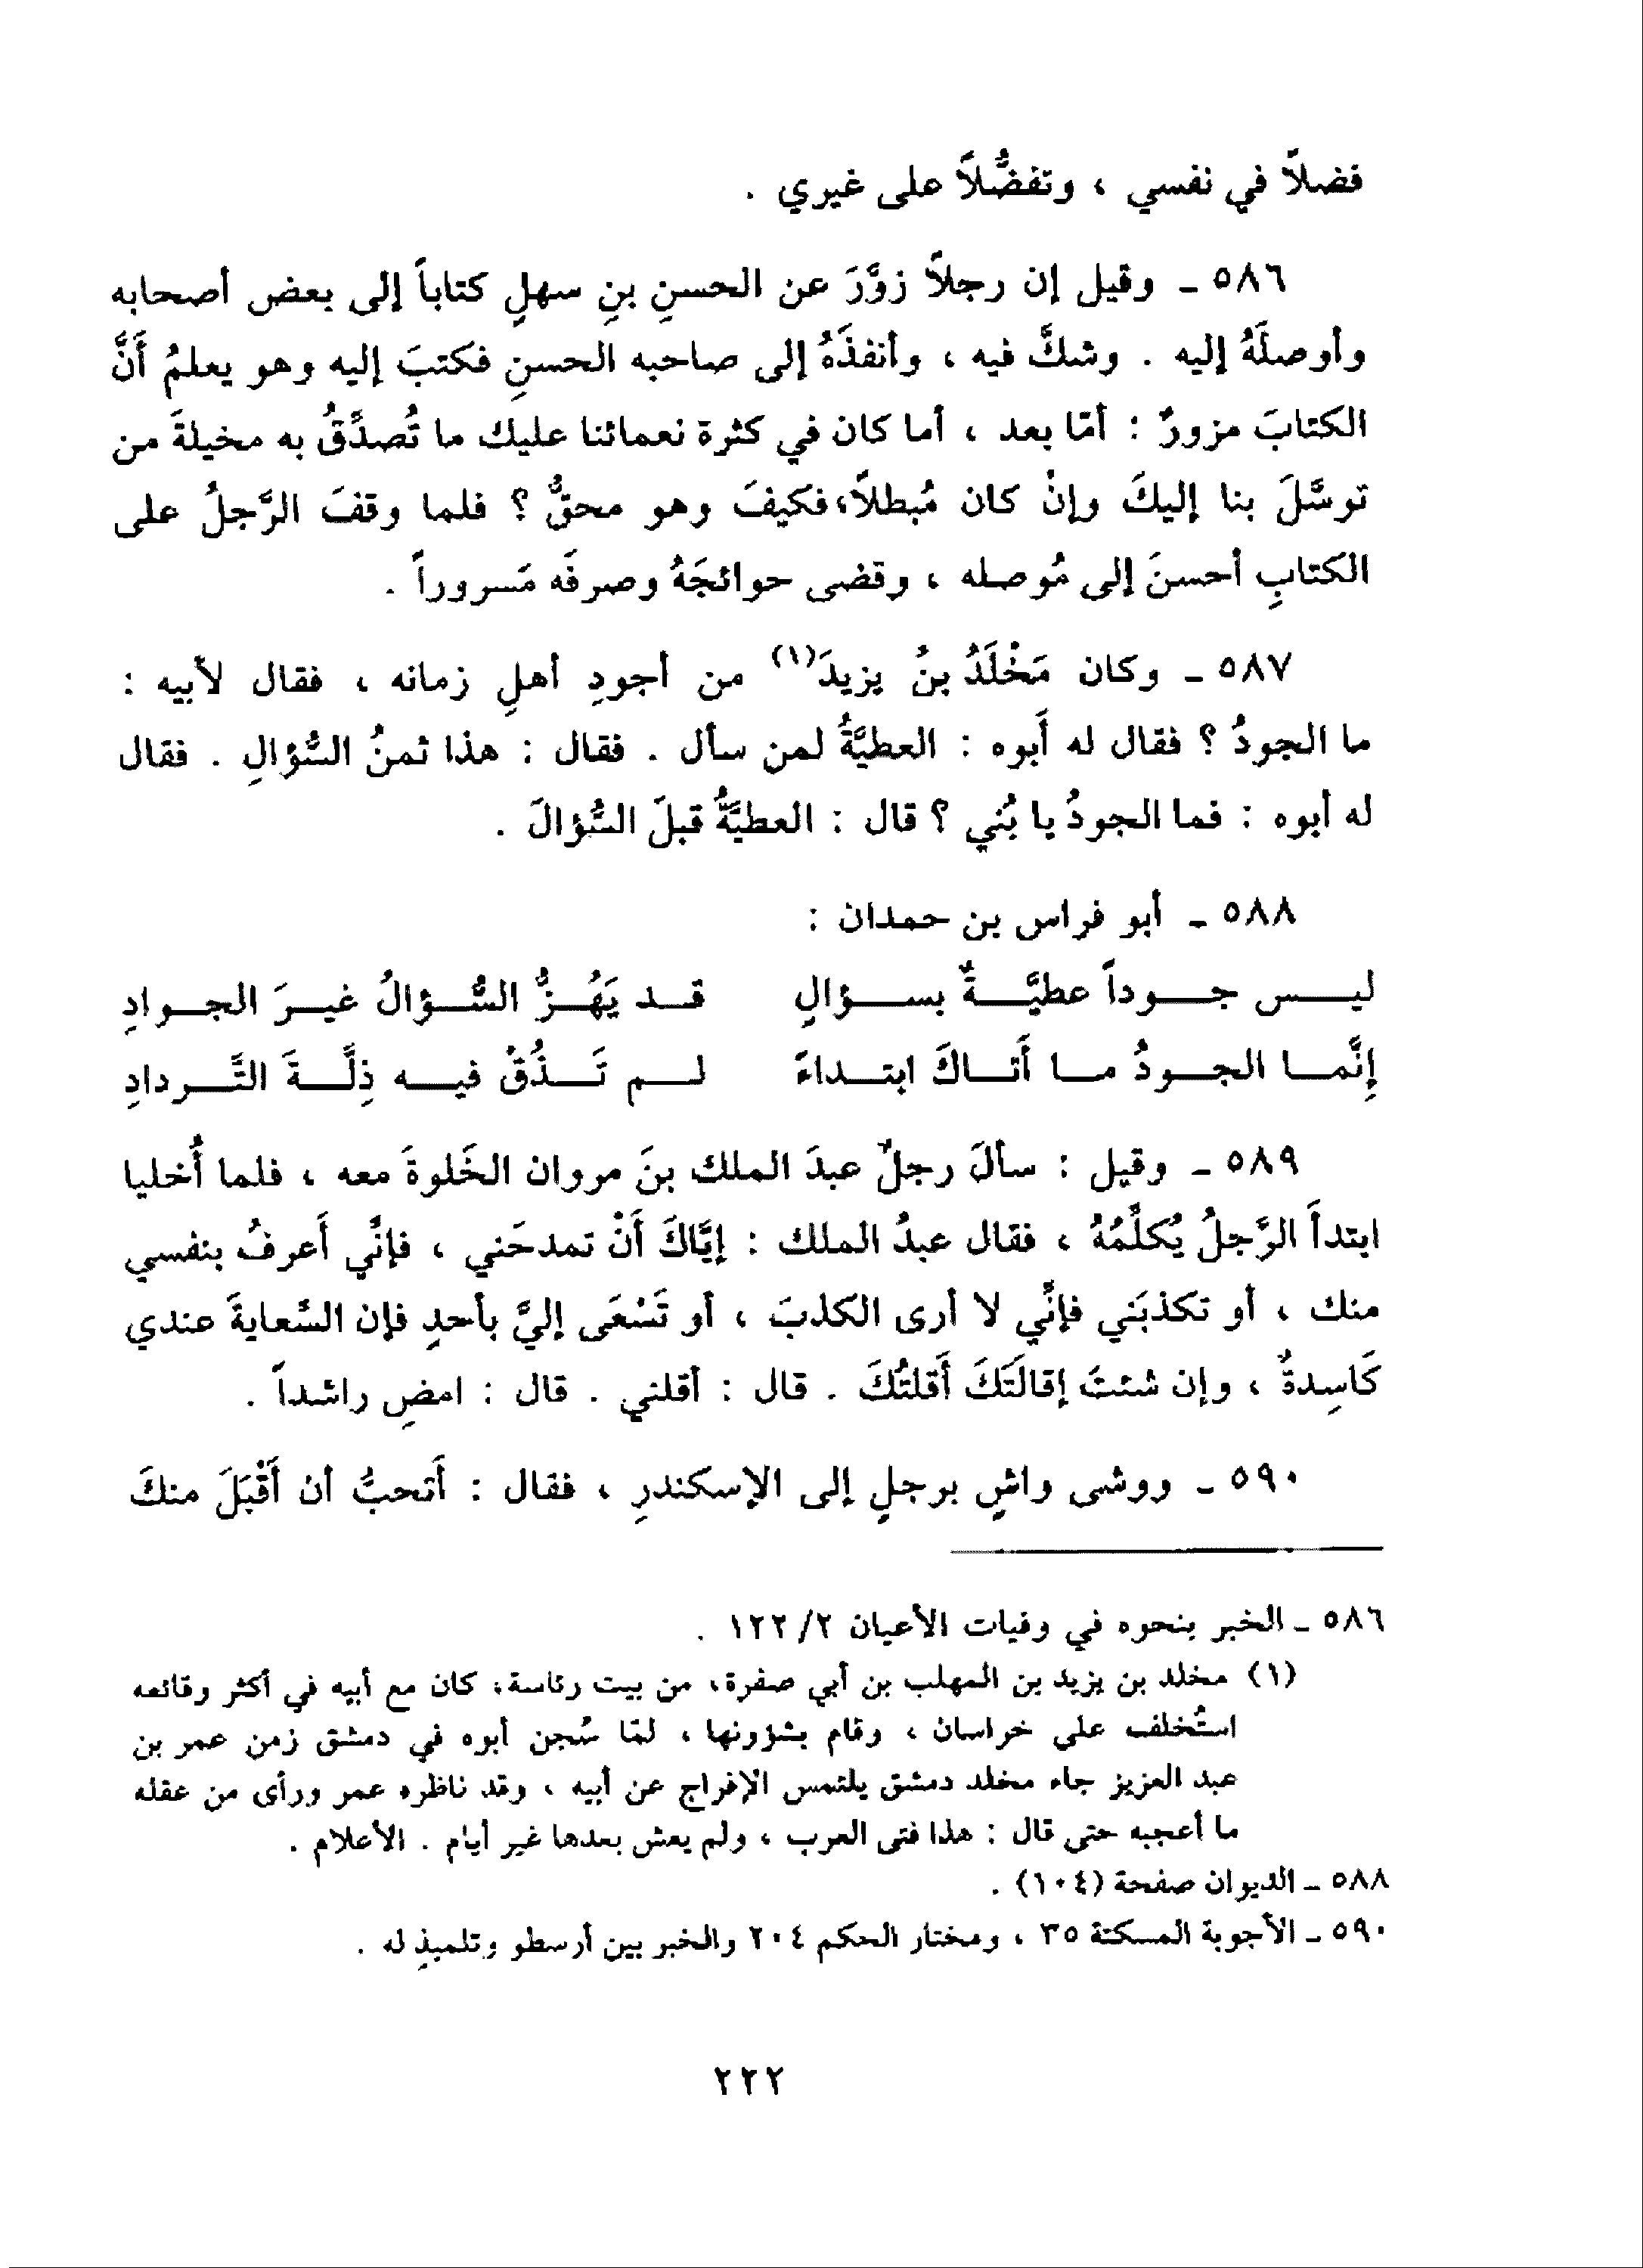 فضلاً في نفسي ، وتفضُّلاً على غيري .
٥٨٦ ـ وقيل إن رجلاً زوَّرَ عن الحسنِ بنِ سهلٍ كتاباً إلى بعض أصحابه
وأوصلَهُ إليه . وشكَّ فيه ، وأنفذَهُ إلى صاحبه الحسنِ فكتبَ إليه وهو يعلمُ أَنَّ
الكتابَ مزورٌ : أمّا بعد ، أما كان في كثرة نعمائنا عليك ما تُصدِّقُ به مخيلةَ من
توسَّلَ بنا إليكَ وإنْ كان مُبطلاً، فكيفَ وهو محقٌّ ؟ فلما وقفَ الرَّجلُ على
الكتابِ أحسنَ إلى مُوصله ، وقضى حوائجَهُ وصرفَه مَسروراً .
٥٨٧ ـ وكان مَخْلَدُ بنُ يزيدَ(١) من أجودِ أهلِ زمانه ، فقال لأبيه :
ما الجودُ ؟ فقال له أَبوه : العطيَّةُ لمن سأل . فقال : هذا ثمنُ السُّؤالِ . فقال
له أبوه : فما الجودُ يا بُني ؟ قال : العطيَّةُ قبلَ السُّؤالَ .
٥٨٨ ـ أبو فراس بن حمدان :
ليـس جـوداً عطيَّـةٌ بسـؤالِ قـد يَهُـزُّ السُّـؤالُ غيـرَ الجـوادِ
إنَّمـا الجـودُ مـا أَتـاكَ ابتـداءً لـم تَـذُقْ فيـه ذِلَّـةَ التَّـردادِ
٥٨٩ ـ وقيل : سألَ رجلٌ عبدَ الملك بنَ مروان الخَلوةَ معه ، فلما أُخليا
ابتدأَ الرَّجلُ يُكلِّمُهُ ، فقال عبدُ الملك : إيَّاكَ أَنْ تمدحَني ، فإنِّي أَعرفُ بنفسي
منك ، أو تكذبَني فإنِّي لا أرى الكذبَ ، أو تَسْعَى إليَّ بأحدٍ فإن السِّعايةَ عندي
كَاسِدةٌ ، وإن شئتَ إقالَتَكَ أَقلتُكَ . قال : أقلني . قال : امضِ راشداً .
٥٩٠ ـ ووشى واشٍ برجلٍ إلى الإسكندرِ ، فقال : أَتحبُّ أن أَقْبَلَ منكَ
٥٨٦ ـ الخبر بنحوه في وفيات الأعيان ٢/ ١٢٢ .
(١) مخلد بن يزيد بن المهلب بن أبي صفرة، من بيت رئاسة، كان مع أبيه في أكثر وقائعه
استُخلف على خراسان ، وقام بشؤونها ، لمّا سُجن أبوه في دمشق زمن عمر بن
عبد العزيز جاء مخلد دمشق يلتمس الإفراج عن أبيه ، وقد ناظره عمر ورأى من عقله
ما أعجبه حتى قال : هذا فتى العرب ، ولم يعش بعدها غير أيام . الأعلام .
٥٨٨ ـ الديوان صفحة (١٠٤) .
٥٩٠ ـ الأجوبة المسكتة ٣٥ ، ومختار الحكم ٢٠٤ والخبر بين أرسطو وتلميذٍ له .
٢٢٢